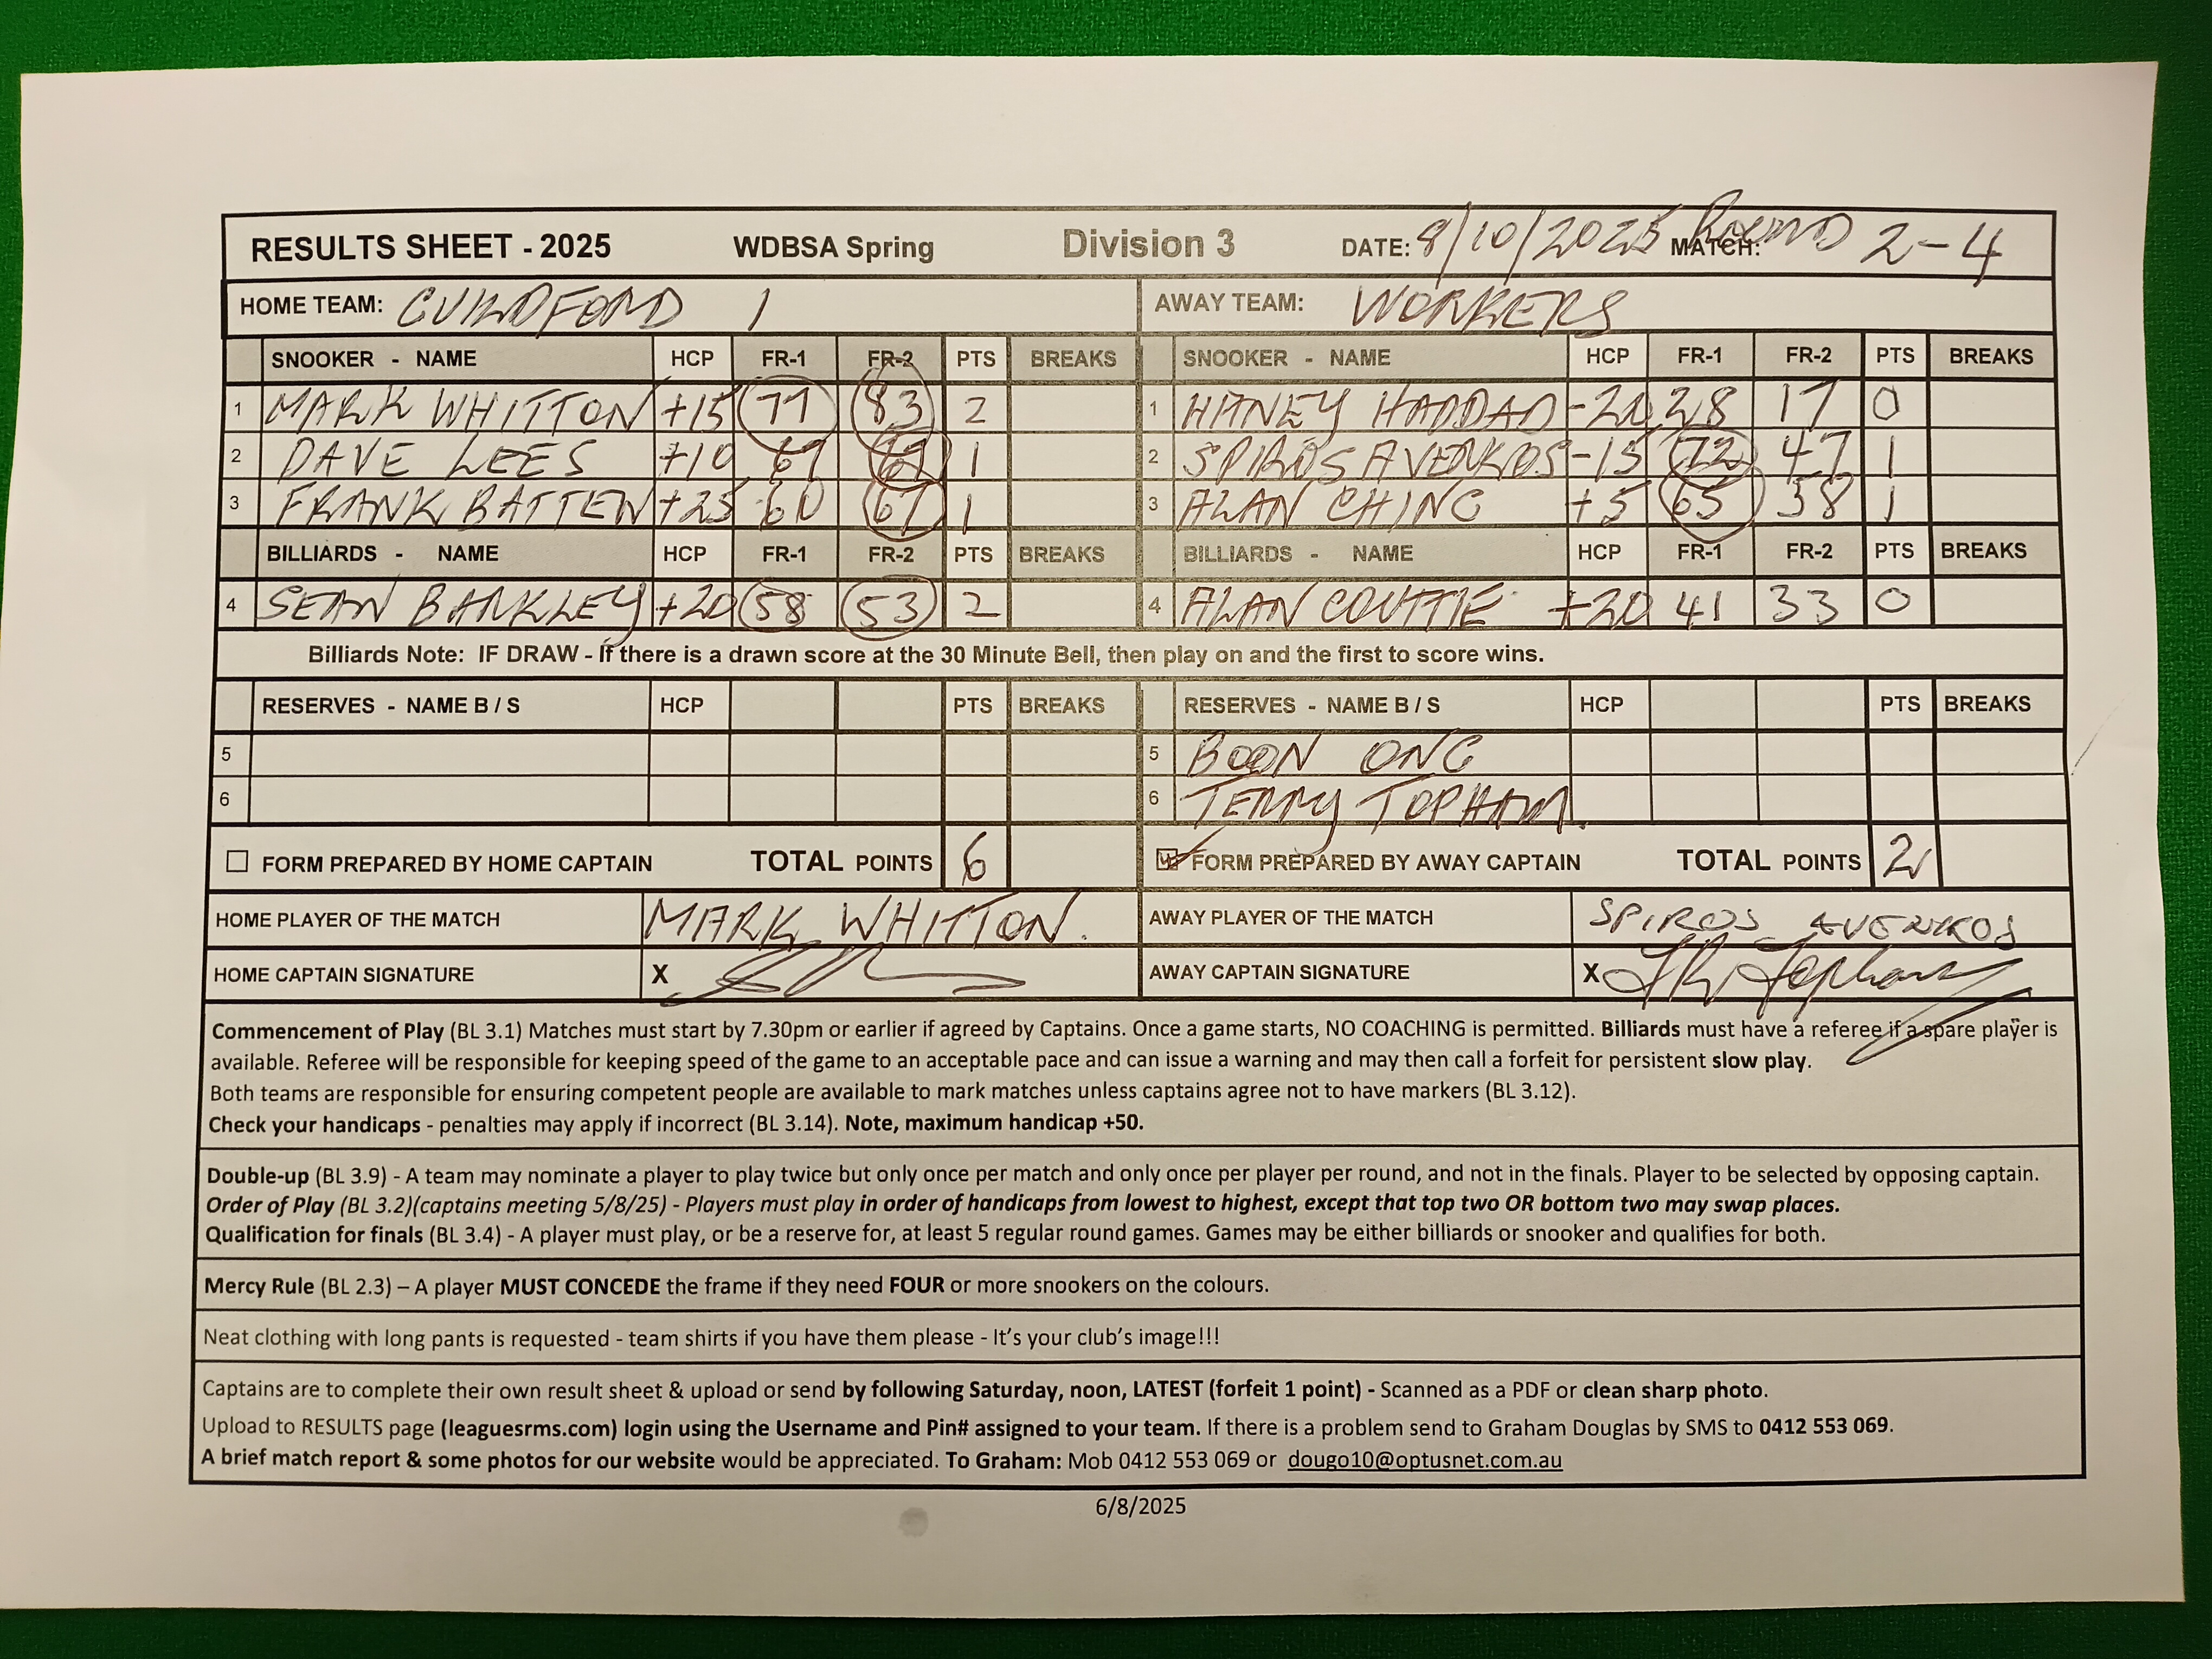 RESULTS SHEET - 2025 WDBSA Spring Division 3 DATE: 8/10/2025 MATCH: ROUND 2-4
HOME TEAM: GUILDFORD 1 AWAY TEAM: WORKERS
SNOOKER - NAME HCP FR-1 FR-2 PTS BREAKS SNOOKER - NAME HCP FR-1 FR-2 PTS BREAKS
1 MARK WHITTON +15 77 83 2 1 HADDAD -20 28 17 0
2 DAVE LEES +10 1 2 SPIROS AVENKOS -15 72 47 1
3 FRANK BATTEN +25 60 67 1 3 ALAN CHING +5 65 38 1
BILLIARDS - NAME HCP FR-1 FR-2 PTS BREAKS BILLIARDS - NAME HCP FR-1 FR-2 PTS BREAKS
4 SEAN BANKLEY +20 58 53 2 4 ALAN COUTTIE +20 41 33 0
Billiards Note: IF DRAW - If there is a drawn score at the 30 Minute Bell, then play on and the first to score wins.
RESERVES - NAME B / S HCP PTS BREAKS RESERVES - NAME B / S HCP PTS BREAKS
5 5 BOON ONG
6 6 TERRY TOPHAM.
FORM PREPARED BY HOME CAPTAIN TOTAL POINTS 6 FORM PREPARED BY AWAY CAPTAIN TOTAL POINTS 2
HOME PLAYER OF THE MATCH MARK WHITTON. AWAY PLAYER OF THE MATCH SPIROS AVENKOS
HOME CAPTAIN SIGNATURE X AWAY CAPTAIN SIGNATURE X Topham
Commencement of Play (BL 3.1) Matches must start by 7.30pm or earlier if agreed by Captains. Once a game starts, NO COACHING is permitted. Billiards must have a referee if a spare player is
available. Referee will be responsible for keeping speed of the game to an acceptable pace and can issue a warning and may then call a forfeit for persistent slow play.
Both teams are responsible for ensuring competent people are available to mark matches unless captains agree not to have markers (BL 3.12).
Check your handicaps - penalties may apply if incorrect (BL 3.14). Note, maximum handicap +50.
Double-up (BL 3.9) - A team may nominate a player to play twice but only once per match and only once per player per round, and not in the finals. Player to be selected by opposing captain.
Order of Play (BL 3.2)(captains meeting 5/8/25) - Players must play in order of handicaps from lowest to highest, except that top two OR bottom two may swap places.
Qualification for finals (BL 3.4) - A player must play, or be a reserve for, at least 5 regular round games. Games may be either billiards or snooker and qualifies for both.
Mercy Rule (BL 2.3) – A player MUST CONCEDE the frame if they need FOUR or more snookers on the colours.
Neat clothing with long pants is requested - team shirts if you have them please - It's your club's image!!!
Captains are to complete their own result sheet & upload or send by following Saturday, noon, LATEST (forfeit 1 point) - Scanned as a PDF or clean sharp photo.
Upload to RESULTS page (leaguesrms.com) login using the Username and Pin# assigned to your team. If there is a problem send to Graham Douglas by SMS to 0412 553 069.
A brief match report & some photos for our website would be appreciated. To Graham: Mob 0412 553 069 or dougo10@optusnet.com.au
6/8/2025